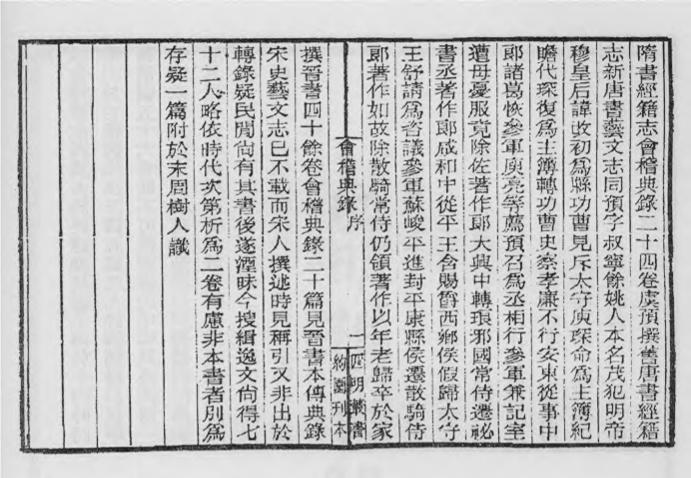 隋書經籍志會稽典錄二十四卷虞預撰舊唐書經籍
志新唐書藝文志同預字叔寧餘姚人本名茂犯明帝
穆皇后諱改初爲縣功曹見斥太守庾琛命爲主簿紀
瞻代琛復爲主簿轉功曹史察孝廉不行安東從事中
郎諸葛恢參軍庾亮等薦預召爲丞相行參軍兼記室
遭母憂服竟除佐著作郎大興中轉琅邪國常侍遷祕
書丞著作郎咸和中從平王含賜爵西鄉侯假歸太守
王舒請爲咨議參軍蘇峻平進封平康縣侯遷散騎侍
郎著作如故除散騎常侍仍領著作以年老歸卒於家
會稽典錄 序
一
四明叢書
約園刊本
撰晉書四十餘卷會稽典錄二十篇見晉書本傳典錄
宋史藝文志已不載而宋人撰述時見稱引又非出於
轉錄疑民閒尙有其書後遂湮昧今搜緝逸文尙得七
十二人略依時代次第析爲二卷有慮非本書者別爲
存疑一篇附於末周樹人識